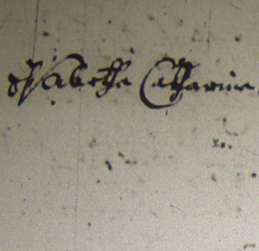 Elisabetha Catharina